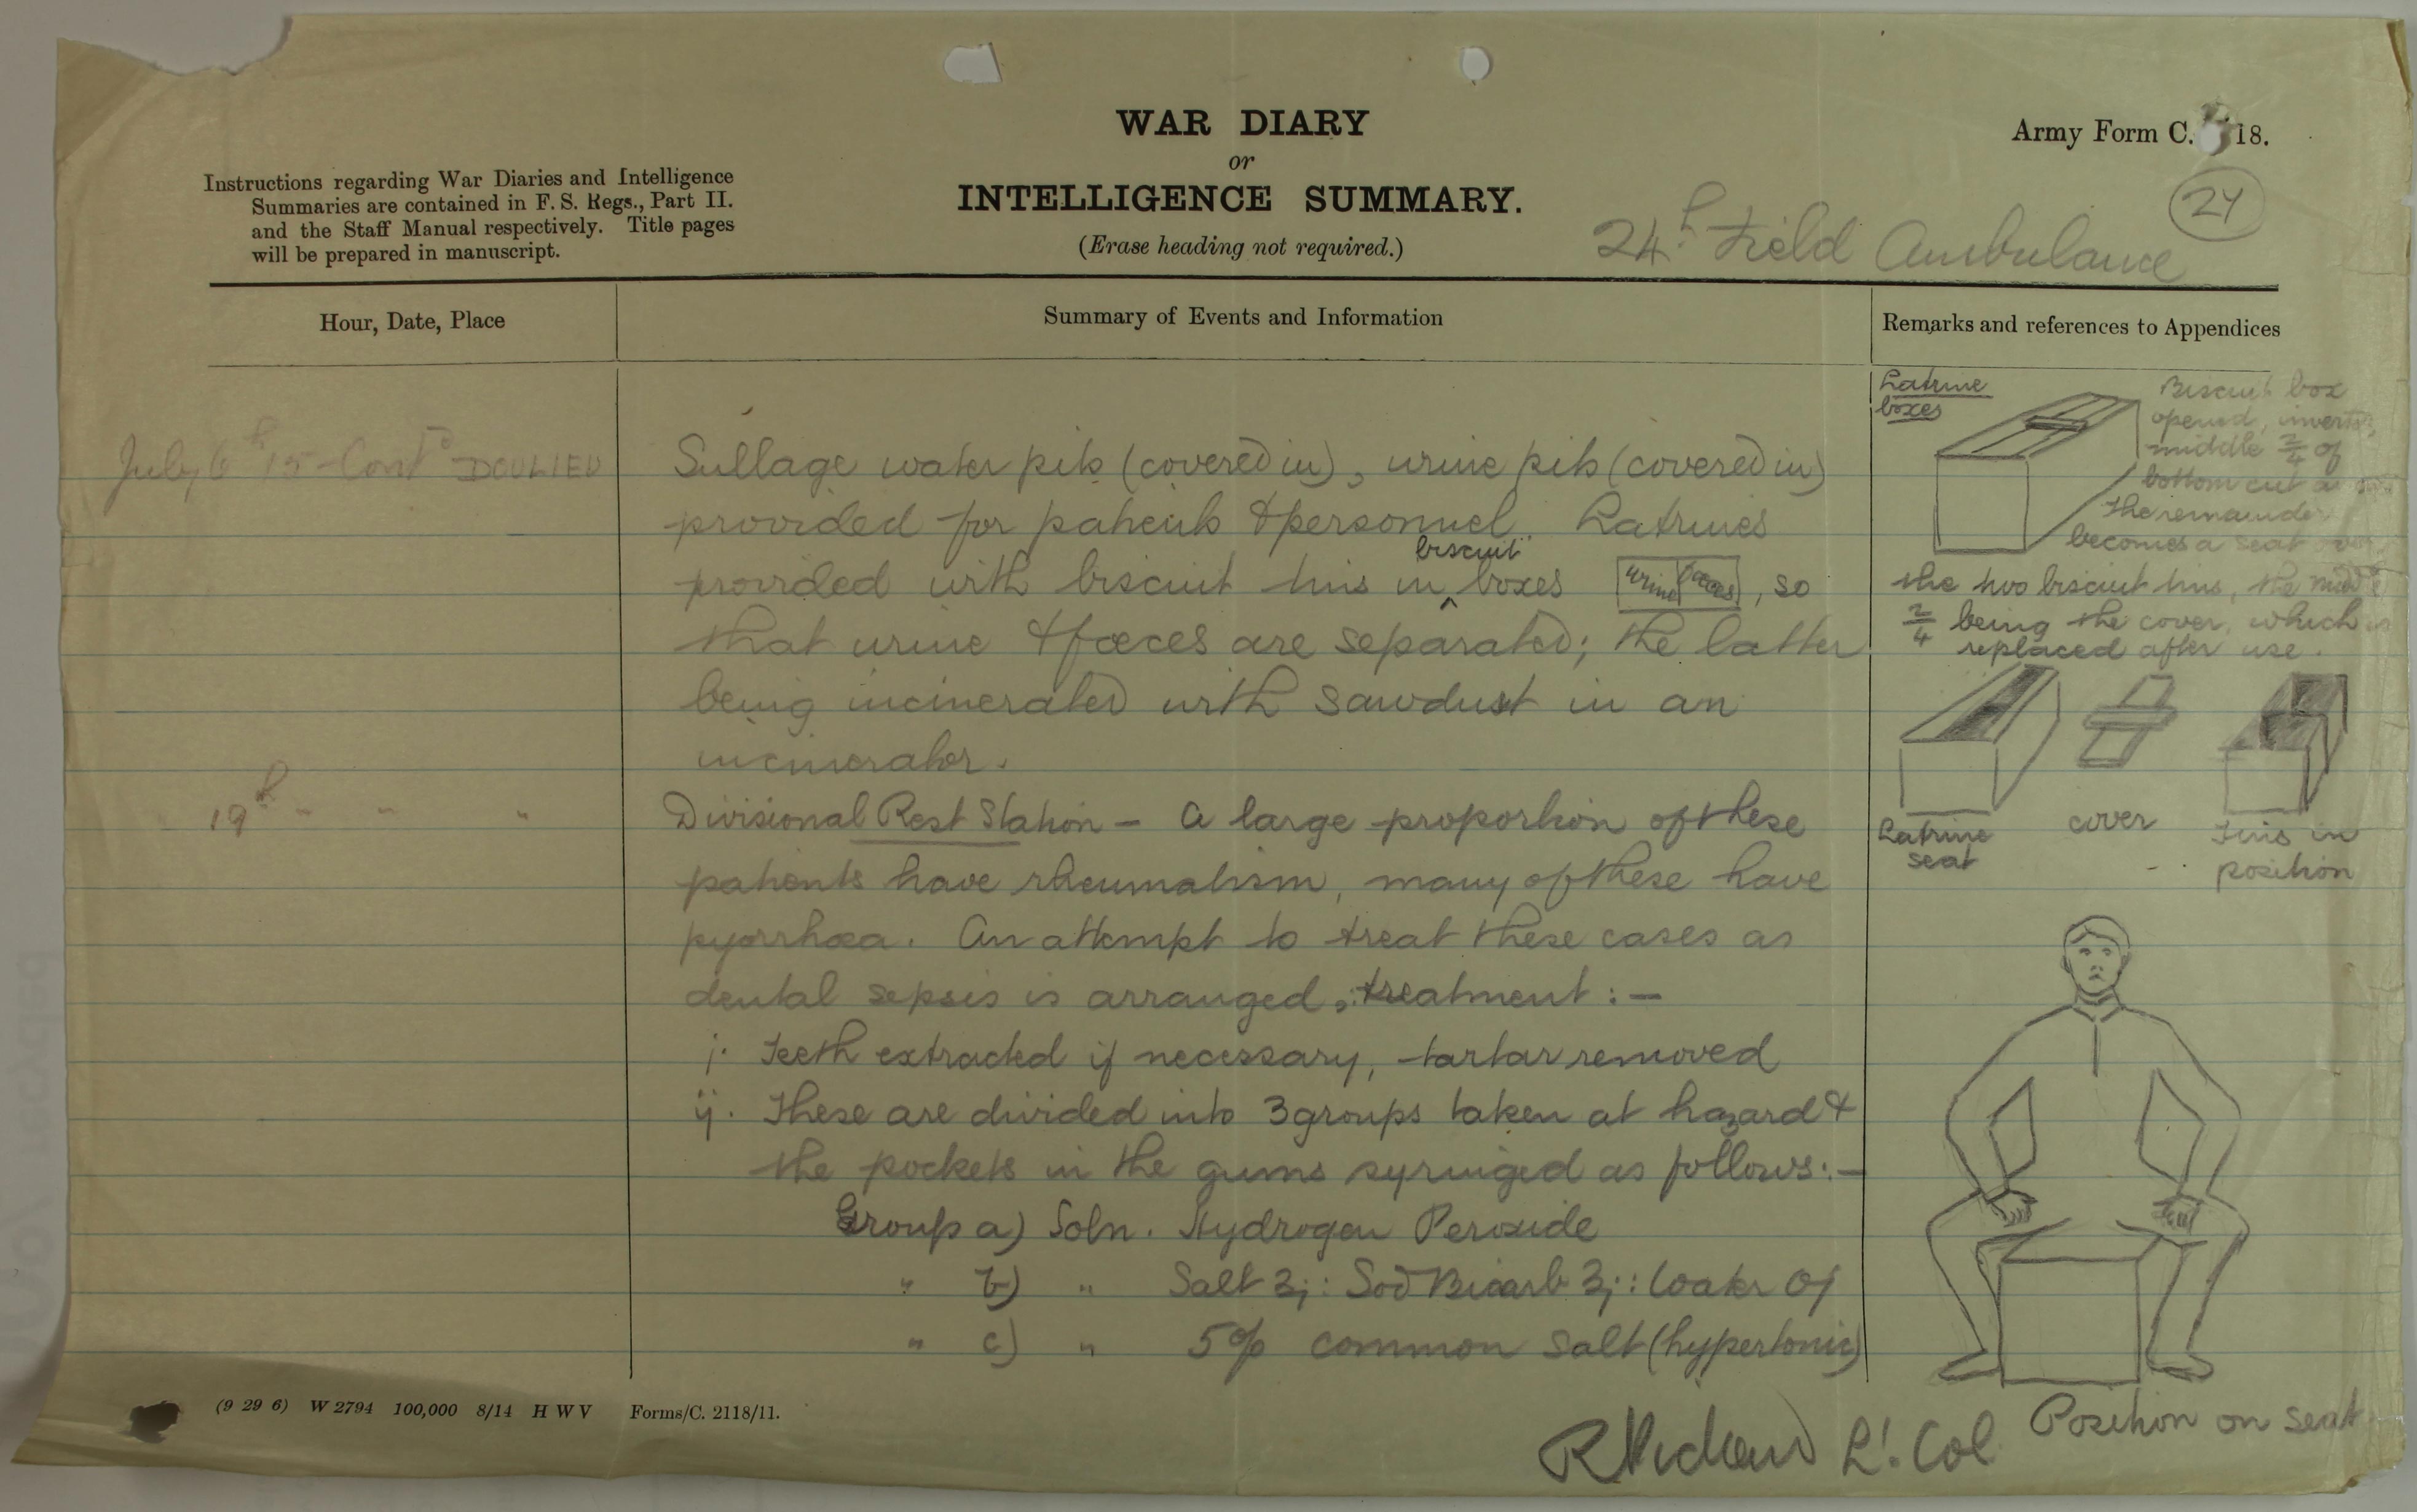 WAR DIARY
or
INTELLIGENCE SUMMARY.
(Erase heading not required.)
Army Form C. 18.
24
24th Field Ambulance
Instructions regarding War Diaries and Intelligence
Summaries are contained in F. S. Regs., Part II.
and the Staff Manual respectively. Title pages
will be prepared in manuscript.
Hour, Date, Place
Summary of Events and Information
Remarks and references to Appendices
July 6th 15 - Contd DOULIEU
Sullage water pits (covered in), urine pits (covered in)
provided for patients & personnel. Latrines
provided with biscuit tins in biscuit boxes urine faeces, so
that urine & fæces are separated; the latter
being incinerated with sawdust in an
incinerator.
19th " " "
Divisional Rest Station - A large proportion of these
patients have rheumatism, many of these have
pyorrhœa. An attempt to treat these cases as
dental sepsis is arranged, treatment :-
i. Teeth extracted if necessary, tartar removed
ij. These are divided into 3 groups taken at hazard &
the pockets in the gums syringed as follows:-
Group a) Soln. Hydrogen Peroxide
" b) " Salt ʒj: Sod Bicarb ʒj: water Oj
" c) " 5% common salt (hypertonic)
Latrine
boxes
Biscuit box
opened, inverted,
middle 2/4 of
bottom cut
the remainder
becomes a seat over
the two biscuit tins, the middle
2/4 being the cover, which is
replaced after use.
Latrine
seat
cover
Tins in
position
Position on seat
Lt. Col
(9 29 6) W 2794 100,000 8/14 H W V Forms/C. 2118/11.